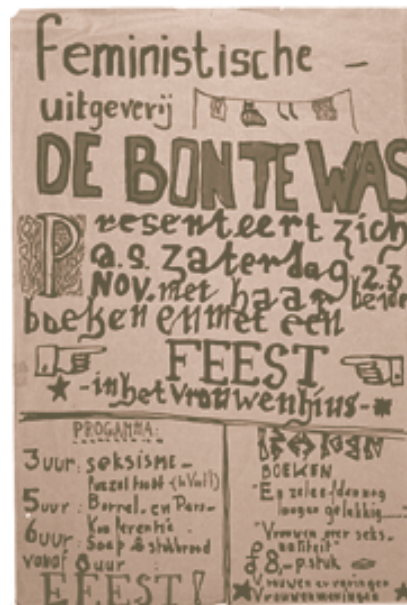 feministische -
uitgeverij
DE BONTE WAS
Presenteert zich
a.s. zaterdag 23
NOV. met haar beide
boeken en met een
FEEST
- in het vrouwenhuis -
PROGAMMA:
3 uur: seksisme-
5 uur: Borrel en Pers-
Konferentie
6 uur: Soep & stokbrood
vanaf 8 uur:
FEEST!
BOEKEN
"En ze leefden nog
lang en gelukkig......"
"Vrouwen over seks-
ualiteit"
à 8,- p. stuk
Vrouwenervaringen
Vrouwenmeningen